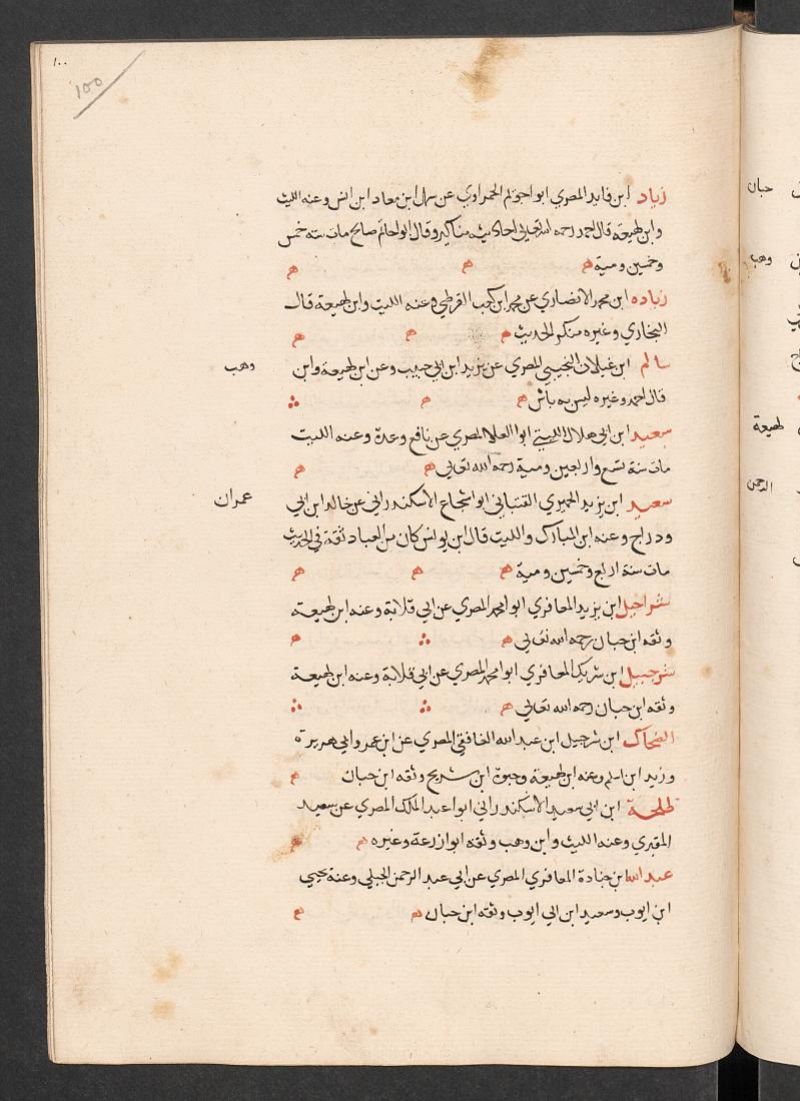 ١٠٠
100
زياد ابن فايد المصري ابوا جوين الحمراوي عن سهل ابن معاد ابن انس وعنه الليث
وابن لهيعة قال احمد رحمه الله احاديثه مناكير وقال ابو حاتم صالح مات سنه خمس
وخمسين ومية
زياده ابن محمد الانصاري عن محمد ابن كعب القرظي وعنه الليث وابن لهيعة قال
البخاري وغيره منكر الحديث
سالم ابن غيلان التجيبي المصري عن يزيد ابن ابي حبيب وعن ابن لهيعة وابن
وهب
قال احمد وغيره ليس به باس
سعيد ابن ابي هلال الليثي ابوا العلا المصري عن نافع وعدة وعنه الليث
مات سنة تسع واربعين ومية رحمه الله تعالى
سعيد ابن يزيد الحميري القتباني ابوا شجاع الاسكندراني عن خالد ابن ابي
عمران
ودراج وعنه ابن المبارك والليث قال ابن يونس كان من العباد ثقة في الحديث
مات سنة اربع وخمسين ومية
شراحيل ابن يزيد المعافري ابوا محمد المصري عن ابي قلابة وعنه ابن لهيعة
وثقه ابن حبان رحمه الله تعالى
شرحبيل ابن شريك المعافري ابوا محمد المصري عن ابي قلابة وعنه ابن لهيعة
وثقه ابن حبان رحمه الله تعالى
الضحاك ابن شرحبيل ابن عبد الله الغافقي المصري عن ابن عمر وابي هريرة
وزيد ابن اسلم وعنه ابن لهيعة وحيوة ابن شريح وثقه ابن حبان
طلحة ابن ابي سعيد الاسكندراني ابوا عبد الملك المصري عن سعيد
المقبري وعنه الليث وابن وهب وثقه ابوا زرعة وغيره
عبد الله ابن جنادة المعافري المصري عن ابي عبد الرحمن الحبلي وعنه يحيى
ابن ايوب وسعيد ابن ابي ايوب وثقه ابن حبان
حبان
وهب
لهيعة
الرحمن